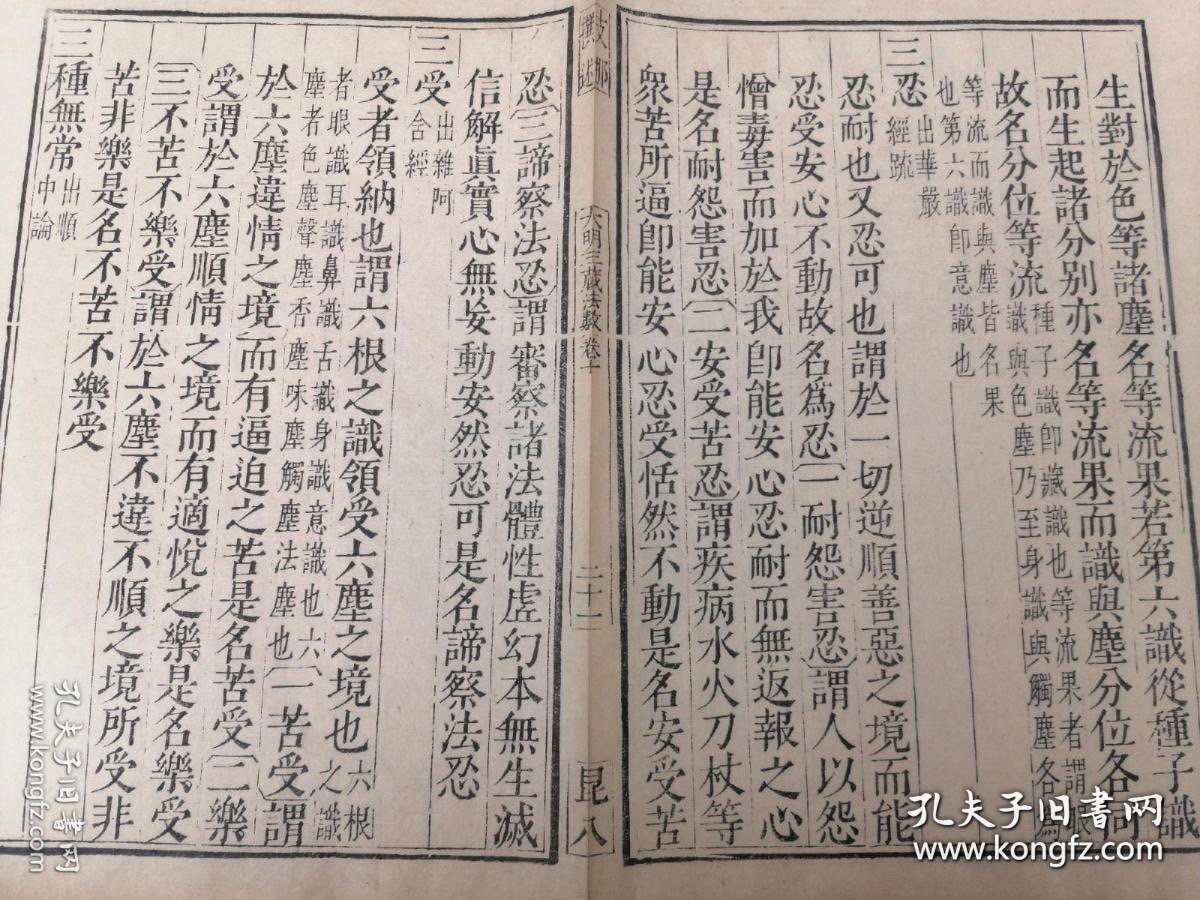 生對於色等諸塵名等流果若第六識從種子識
而生起諸分別亦名等流果而識與塵分位各
故名分位等流種子識即藏識也等流果者謂眼識與色塵乃至身識與觸塵各為
等流而識與塵皆名果也第六識即意識也
三忍出華嚴經䟽
忍耐也又忍可也謂於一切逆順善惡之境而能
忍受安心不動故名爲忍〔一耐怨害忍〕謂人以怨
憎毒害而加於我即能安心忍耐而無返報之心
是名耐怨害忍〔二安受苦忍〕謂疾病水火刀杖等
衆苦所逼即能安心忍受恬然不動是名安受苦
大明三藏法數卷十
二十一
昆八
忍〔三諦察法忍〕謂審察諸法體性虛幻本無生滅
信解眞實心無妄動安然忍可是名諦察法忍
三受出雜阿含經
受者領納也謂六根之識領受六塵之境也六根之識
者眼識耳識鼻識舌識身識意識也六塵者色塵聲塵香塵味塵觸塵法塵也〔一苦受〕謂
於六塵違情之境而有逼迫之苦是名苦受〔二樂
受〕謂於六塵順情之境而有適悅之樂是名樂受
〔三不苦不樂受〕謂於六塵不違不順之境所受非
苦非樂是名不苦不樂受
三種無常出順中論
孔夫子旧书网
www.kongfz.com
孔夫子旧书网
www.kongfz.com